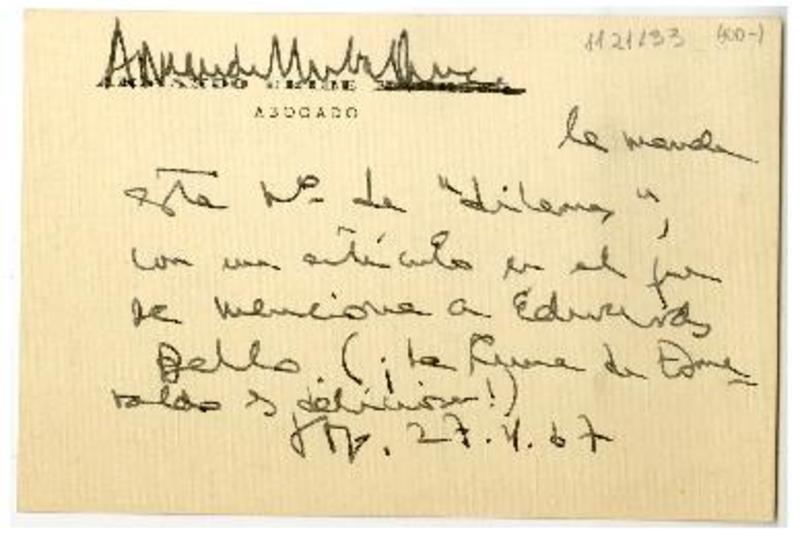 1121133 (400-)
Armando Uribe
ABOGADO
le manda
este Nº de "dilemas",
con un artículo en el que
se menciona a Edwards
Bello. (¡La Reina de Esme-
raldas es deliciosa!)
Stgo. 27.V.67